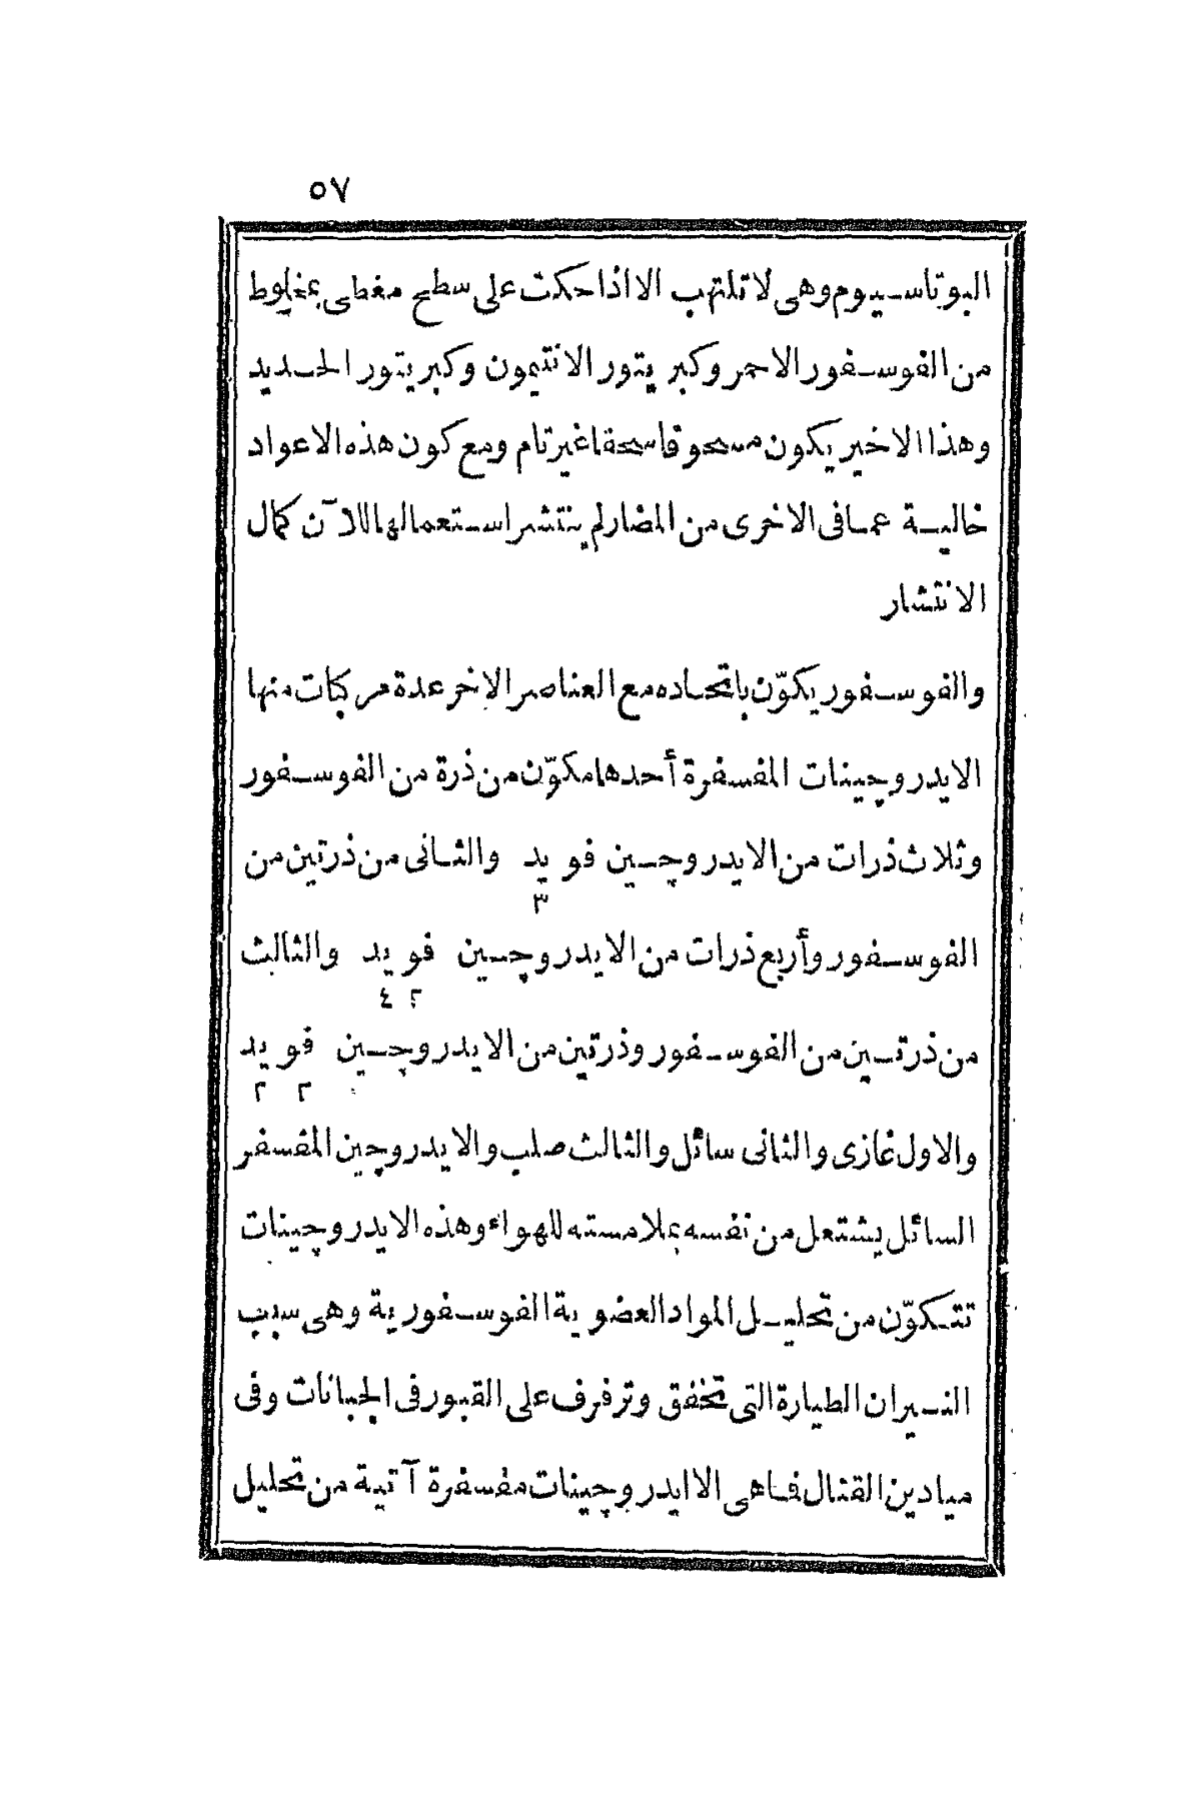 ٥٧
البوتاسيوم وهى لا تلتهب الا اذا حكت على سطح مغطى بمخلوط
من الفوسفور الاحمر وكبريتور الانتيمون وكبريتور الحديد
وهذا الاخير يكون مسحوقا سحقا غير تام ومع كون هذه الاعواد
خالية عما فى الاخرى من المضار لم ينتشر استعمالها للآن كمال
الانتشار
والفوسفور يكوّن باتحاده مع العناصر الاخر عدة مركبات منها
الايدروچينات المفسفرة أحدها مكوّن من ذرة من الفوسفور
وثلاث ذرات من الايدروچين فو يد والثانى من ذرتين من
٣
الفوسفور وأربع ذرات من الايدروچين فو يد والثالث
٢ ٤
من ذرتين من الفوسفور وذرتين من الايدروچين فو يد
٢ ٢
والاول غازى والثانى سائل والثالث صلب والايدروچين المفسفر
السائل يشتعل من نفسه بملامسته للهواء وهذه الايدروچينات
تتكوّن من تحليل المواد العضوية الفوسفورية وهى سبب
النيران الطيارة التى تخفق وترفرف على القبور فى الجبانات وفى
ميادين القتال فاهى الا ايدروچينات مفسفرة آتية من تحليل